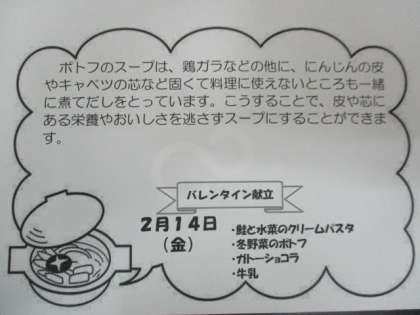 ポトフのスープは、鶏ガラなどの他に、にんじんの皮
やキャベツの芯など固くて料理に使えないところも一緒
に煮てだしをとっています。こうすることで、皮や芯に
ある栄養やおいしさを逃さずスープにすることができま
す。
バレンタイン献立
2月14日
（金）
・鮭と水菜のクリームパスタ
・冬野菜のポトフ
・ガトーショコラ
・牛乳